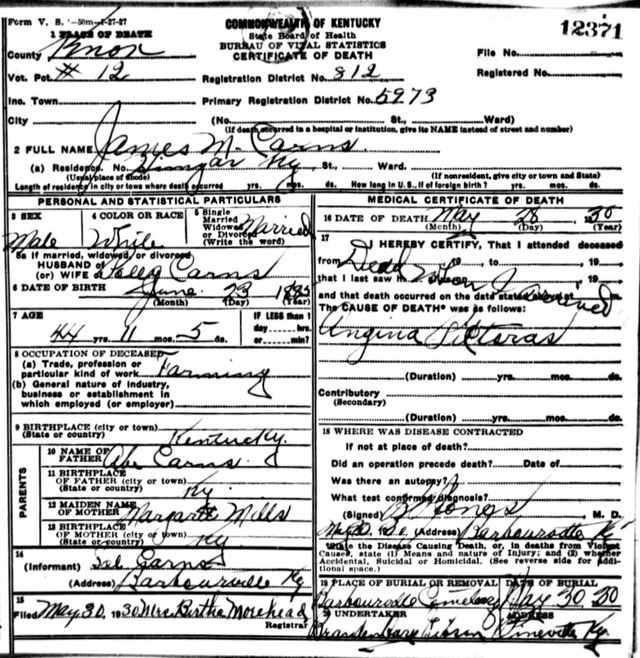 Form V. S. -50m-1-27-27
COMMONWEALTH OF KENTUCKY
State Board of Health
BUREAU OF VITAL STATISTICS
CERTIFICATE OF DEATH
12371
1 PLACE OF DEATH
County Knox
File No.
Vot. Pct. # 12
Registration District No. 812
Registered No.
Inc. Town
Primary Registration District No. 5973
City (No. St., Ward)
(If death occurred in a hospital or institution, give its NAME instead of street and number)
2 FULL NAME James M. Carns
(a) Residence. No. Ky, St., Ward.
(Usual place of abode) (If nonresident, give city or town and State)
Length of residence in city or town where death occurred yrs. mos. ds. How long in U.S., if of foreign birth? yrs. mos. ds.
PERSONAL AND STATISTICAL PARTICULARS
3 SEX Male
4 COLOR OR RACE White
5 Single Married Widowed or Divorced (Write the word) Married
5a If married, widowed, or divorced
HUSBAND of
(or) WIFE of Carns
6 DATE OF BIRTH June 23 1885
(Month) (Day) (Year)
7 AGE
IF LESS than 1 day----hrs. or----min?
44 yrs. 11 mos. 5 ds.
8 OCCUPATION OF DECEASED
(a) Trade, profession or particular kind of work Farming
(b) General nature of industry, business or establishment in which employed (or employer)
9 BIRTHPLACE (city or town)
(State or country) Kentucky.
PARENTS
10 NAME OF FATHER Abe Carns
11 BIRTHPLACE OF FATHER (city or town) (State or country) Ky.
12 MAIDEN NAME OF MOTHER Margaret Mills
13 BIRTHPLACE OF MOTHER (city or town) (State or country) Ky
14
(Informant) Carns
(Address) Barbourville Ky
15
Filed May 30, 1930 Mrs Birtha Morehead
Registrar
MEDICAL CERTIFICATE OF DEATH
16 DATE OF DEATH May 28 1930
(Month) (Day) (Year)
17
I HEREBY CERTIFY, That I attended deceased
from Dead, 19 to, 19
that I last saw h, 19
and that death occurred on the date stated above at m.
The CAUSE OF DEATH* was as follows:
Angina Pictoras
(Duration) yrs. mos. ds.
Contributory
(Secondary)
(Duration) yrs. mos. ds.
18 WHERE WAS DISEASE CONTRACTED
if not at place of death?
Did an operation precede death? Date of
Was there an autopsy?
What test confirmed diagnosis?
(Signed) Jones M. D.
(Address) Barbourville Ky
*State the Disease Causing Death, or, in deaths from Violent Causes, state (1) Means and nature of Injury; and (2) whether Accidental, Suicidal or Homicidal. (See reverse side for additional space.)
19 PLACE OF BURIAL OR REMOVAL
DATE OF BURIAL
Barbourville Cemetery May 30, 30
20 UNDERTAKER
ADDRESS
Pineville Ky.